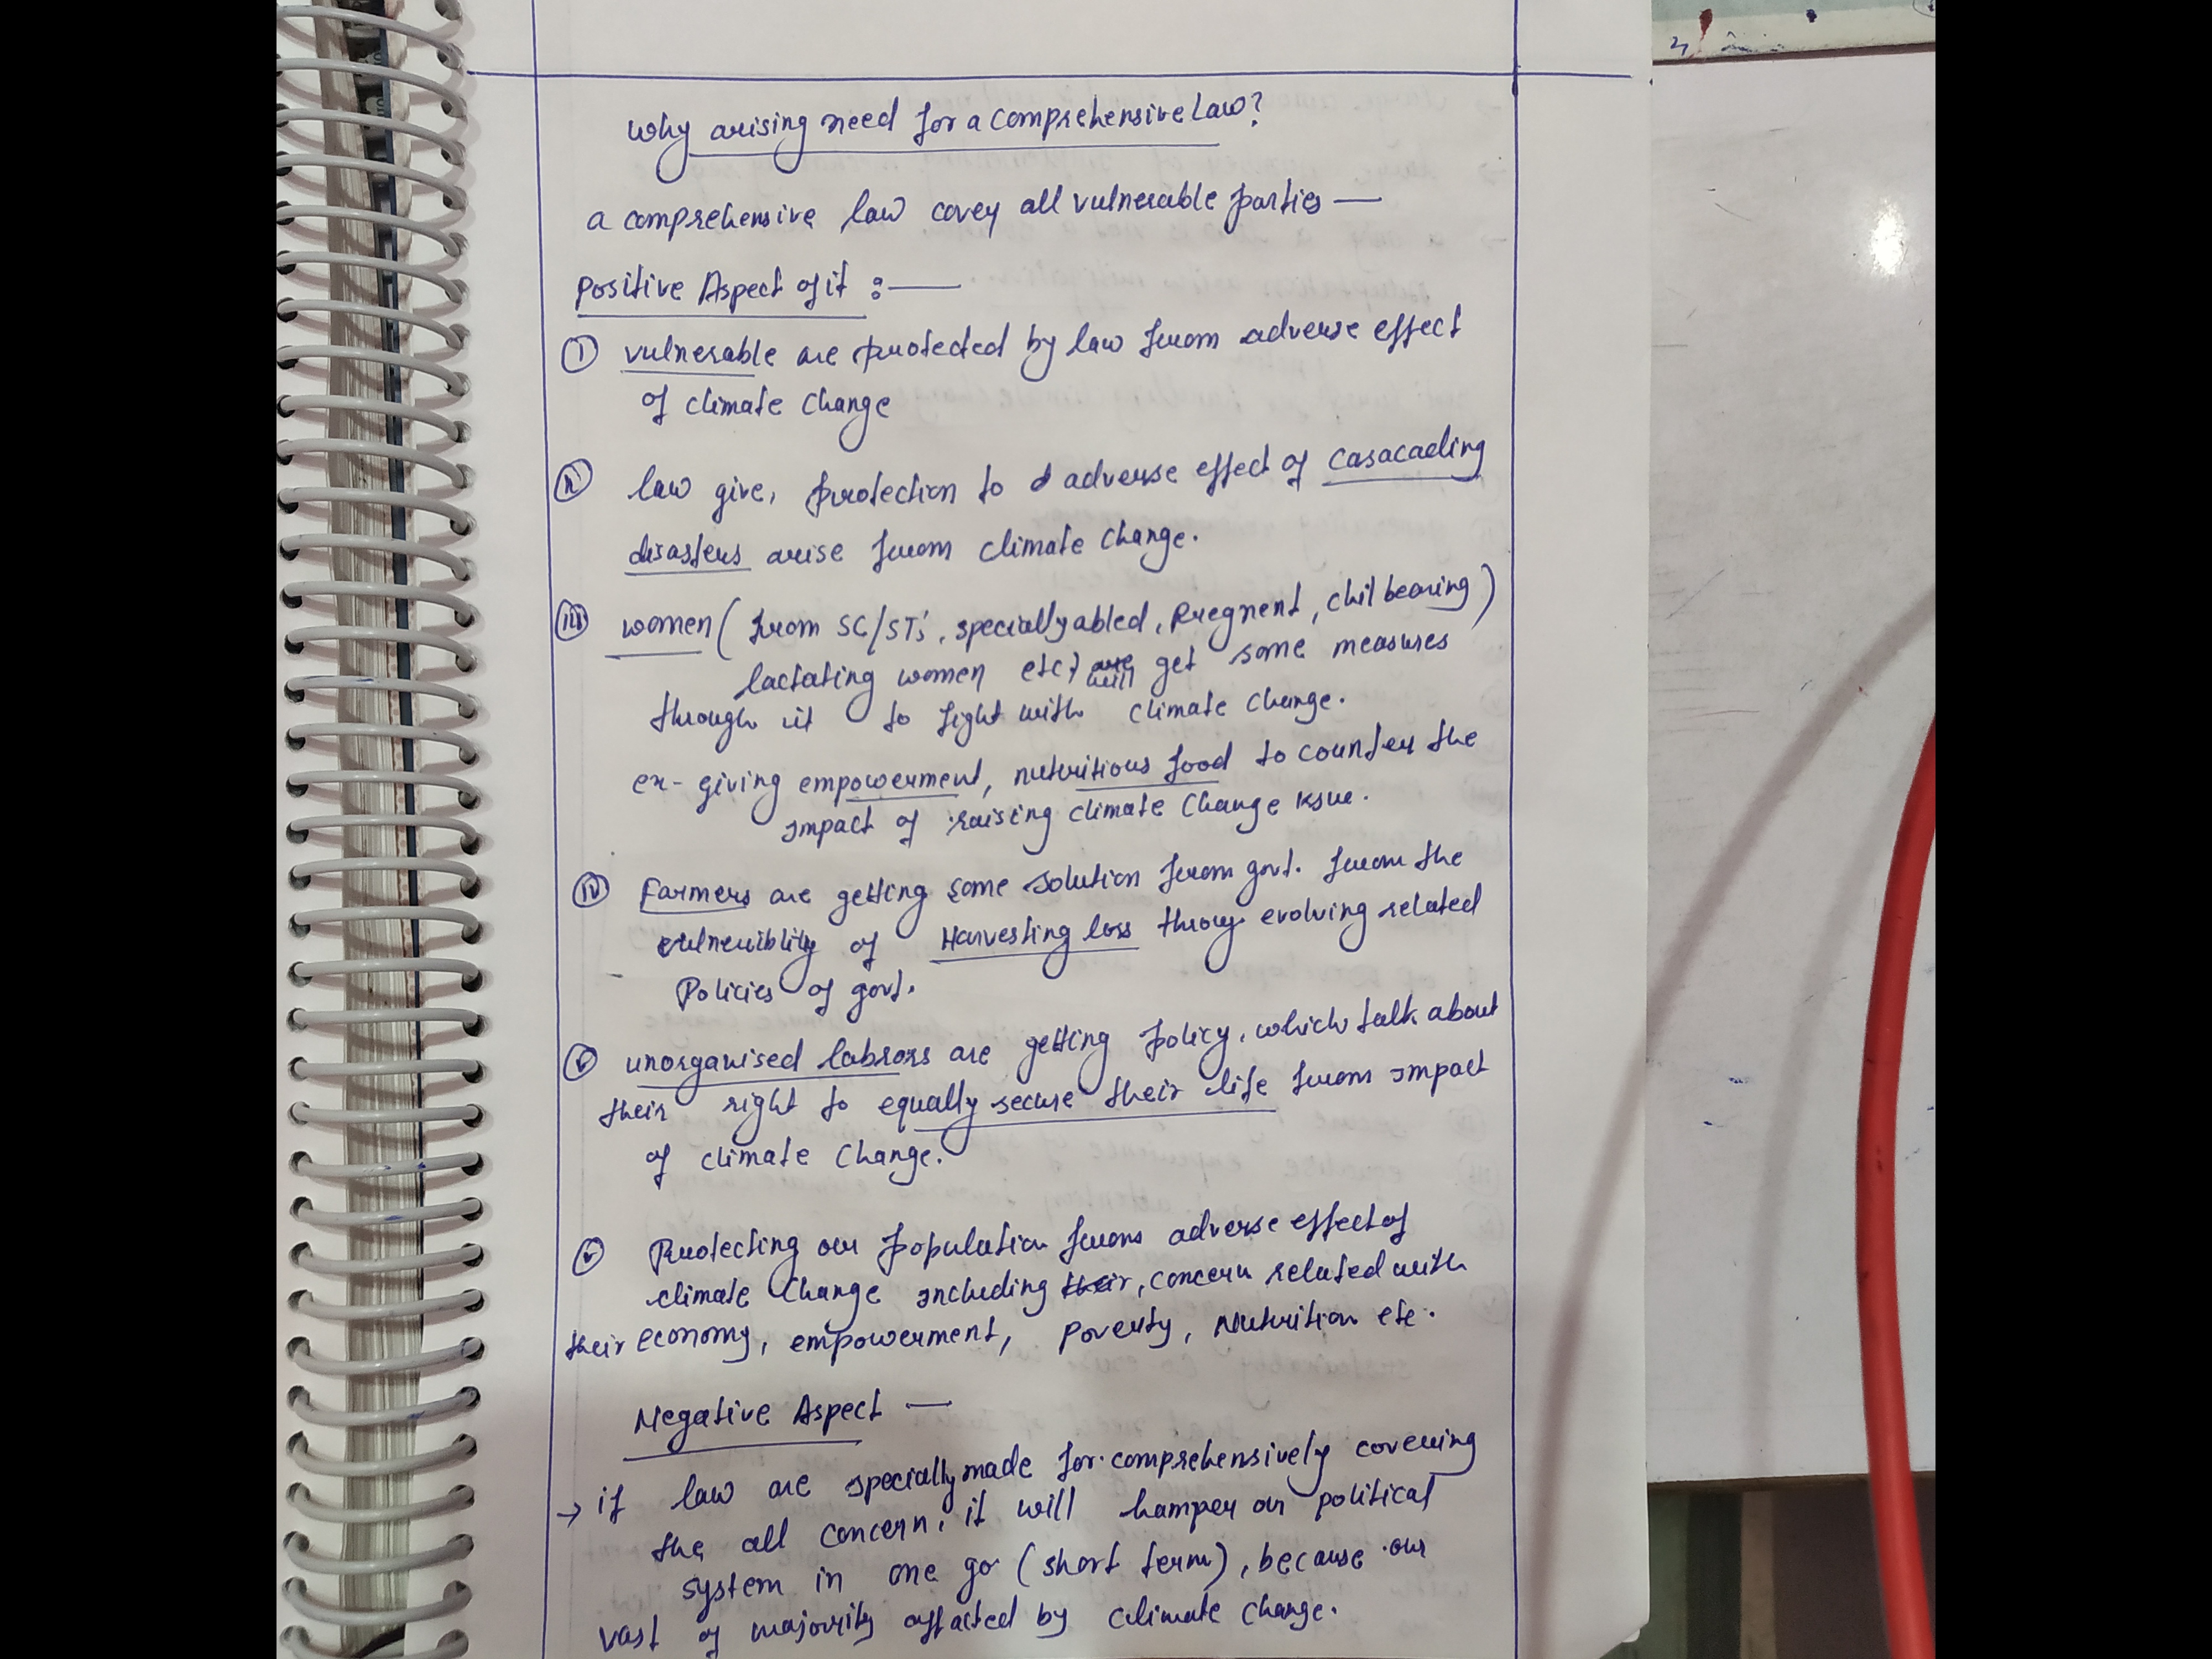 Why arising need for a comprehensive law?
a comprehensive law covey all vulnerable parties —
positive Aspect of it :—
(i) vulnerable are protected by law from adverse effect
of climate change
(ii) law give, protection to adverse effect of casacading
disasters arise from climate change.
(iii) women ( from SC/ST's, specially abled, Pregnent, chil bearing)
lactating women etc) will get some measures
through it to fight with climate change.
ex- giving empowerment, nutritious food to counter the
impact of raising climate change issue.
(iv) Farmers are getting some solution from govt. from the
vulneriblity of Harvesting loss throug evolving related
Policies of govt.
(v) unorganised labrors are getting policy, which talk about
their right to equally secure their life from impact
of climate change.
(v) Protecting our population from adverse effect of
climate change including concern related with
their economy, empowerment, poverty, Nutrition etc.
Negative Aspect —
→ if law are specially made for comprehensively covering
the all concern, it will hamper our political
system in one go (short term), because our
vast of majority affacted by climate change.